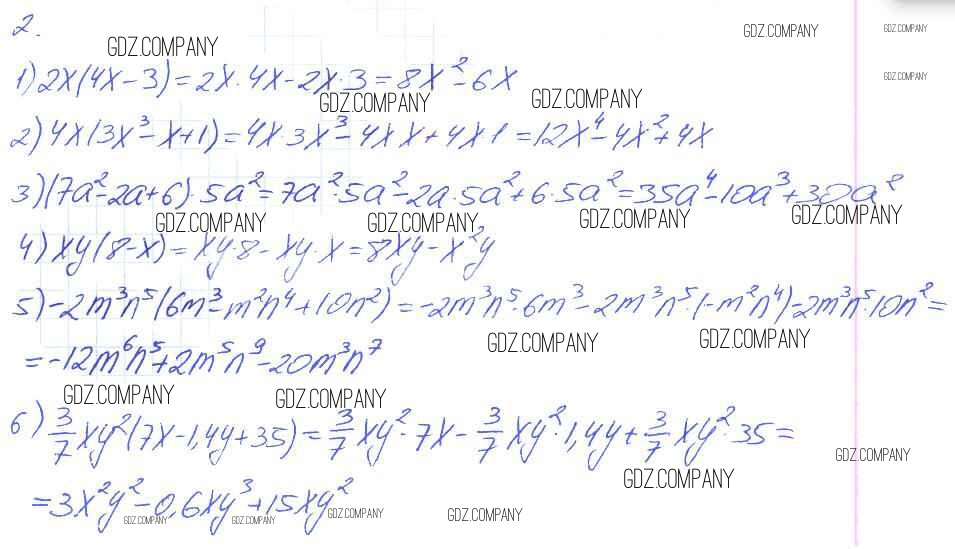 2.
GDZ.COMPANY GDZ.COMPANY GDZ.COMPANY
1) 2x(4x-3)=2x·4x-2x·3=8x²-6x GDZ.COMPANY
GDZ.COMPANY GDZ.COMPANY
2) 4x(3x³-x+1)=4x·3x³-4x·x+4x·1=12x⁴-4x²+4x
3) (7a²-2a+6)·5a²=7a²·5a²-2a·5a²+6·5a²=35a⁴-10a³+30a²
GDZ.COMPANY GDZ.COMPANY GDZ.COMPANY GDZ.COMPANY
4) xy(8-x)=xy·8-xy·x=8xy-x²y
5) -2m³n⁵(6m³-m²n⁴+10n²)=-2m³n⁵·6m³-2m³n⁵·(-m²n⁴)-2m³n⁵·10n²=
GDZ.COMPANY GDZ.COMPANY
=-12m⁶n⁵+2m⁵n⁹-20m³n⁷
GDZ.COMPANY GDZ.COMPANY
6) 3/7xy²(7x-1,4y+35)=3/7xy²·7x-3/7xy²·1,4y+3/7xy²·35=
GDZ.COMPANY GDZ.COMPANY
=3x²y²-0,6xy³+15xy²
GDZ.COMPANY GDZ.COMPANY GDZ.COMPANY GDZ.COMPANY